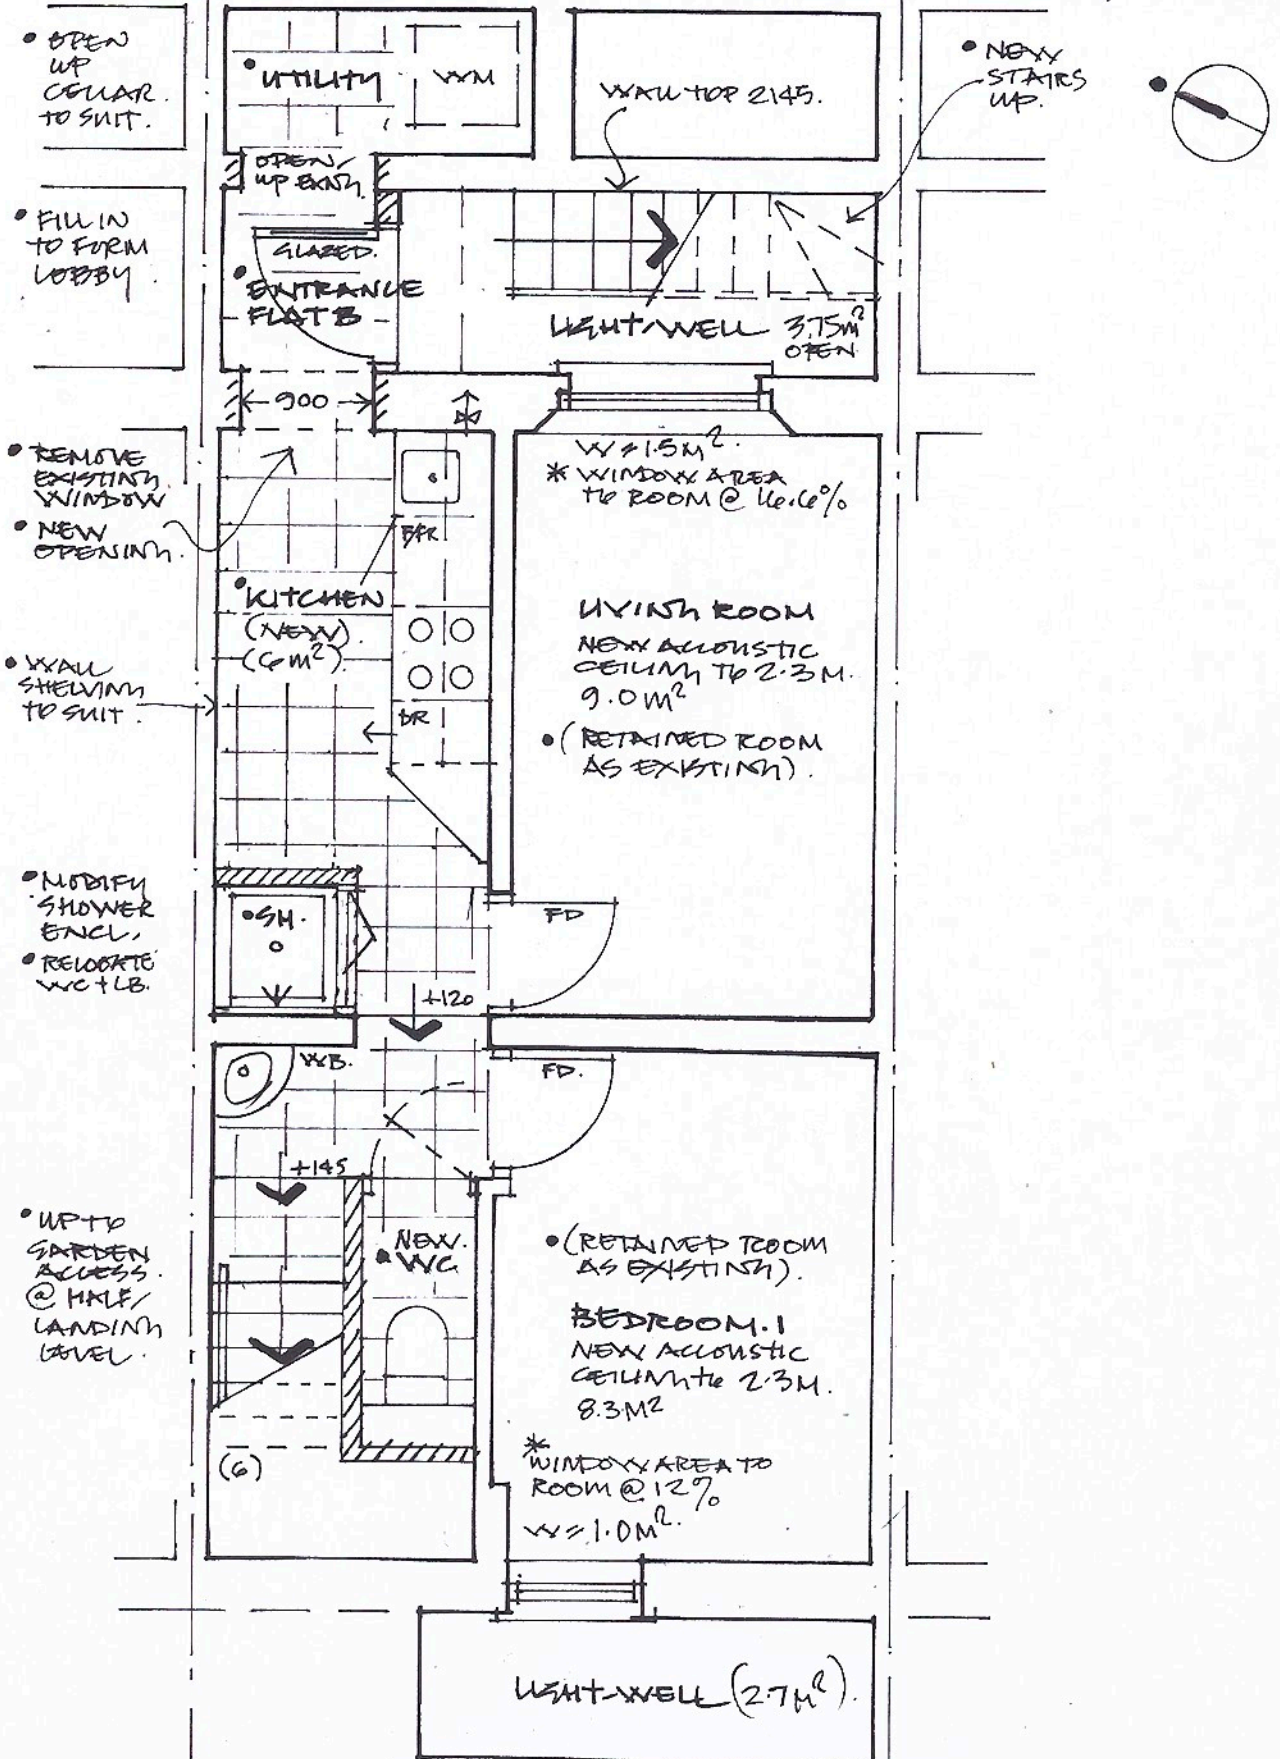 • OPEN
UP
CELLAR.
TO SUIT.
• UTILITY
WM
WALL TOP 2145.
• NEW
STAIRS
UP.
OPEN
UP EXNG
• FILL IN
TO FORM
LOBBY
GLAZED.
• ENTRANCE
FLAT B
LIGHT-WELL 3.75m²
OPEN
900
• REMOVE
EXISTING
WINDOW
• NEW
OPENING.
W = 1.5M².
* WINDOW AREA
TO ROOM @ 16.6%
B/FR
• KITCHEN
(NEW).
(6m²).
LIVING ROOM
NEW ACCOUSTIC
CEILING TO 2.3M.
9.0m²
• (RETAINED ROOM
AS EXISTING).
• WALL
SHELVING
TO SUIT.
DR
• MODIFY
SHOWER
ENCL,
• RELOCATE
WC + LB.
• SH.
FD
+120
WB.
FD.
+145
• UP TO
GARDEN
ACCESS.
@ HALF/
LANDING
LEVEL.
NEW.
• WC
• (RETAINED ROOM
AS EXISTING).
BEDROOM.1
NEW ACCOUSTIC
CEILING to 2.3M.
8.3M²
*
WINDOW AREA TO
ROOM @ 12%
W = 1.0M².
(6)
LIGHT-WELL (2.7M²).